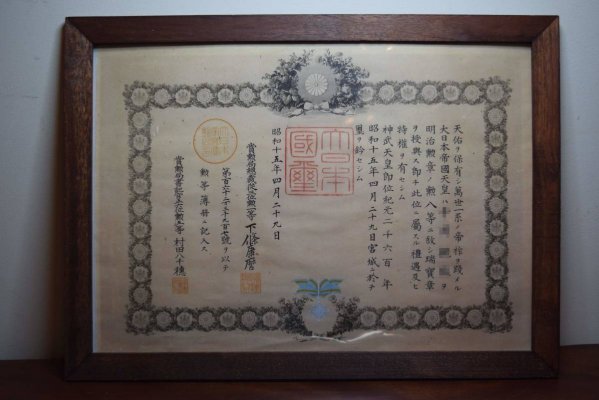 天佑ヲ保有シ萬世一系ノ帝祚ヲ踐メル
大日本帝國天皇ハ
ヲ
明治勲章ノ勲八等ニ敍シ瑞寶章
ヲ授與ス即チ此位ニ屬スル禮遇及ヒ
特權ヲ有セシム
神武天皇即位紀元二千六百年
昭和十五年四月二十九日宮城ニ於テ
璽ヲ鈐セシム
大日本
國璽
昭和十五年四月二十九日
賞勲局總裁從三位勲二等下條康麿
號ヲ以テ
勲等簿册ニ記入ス
賞勲局書記官正五位勲五等村田八千穂